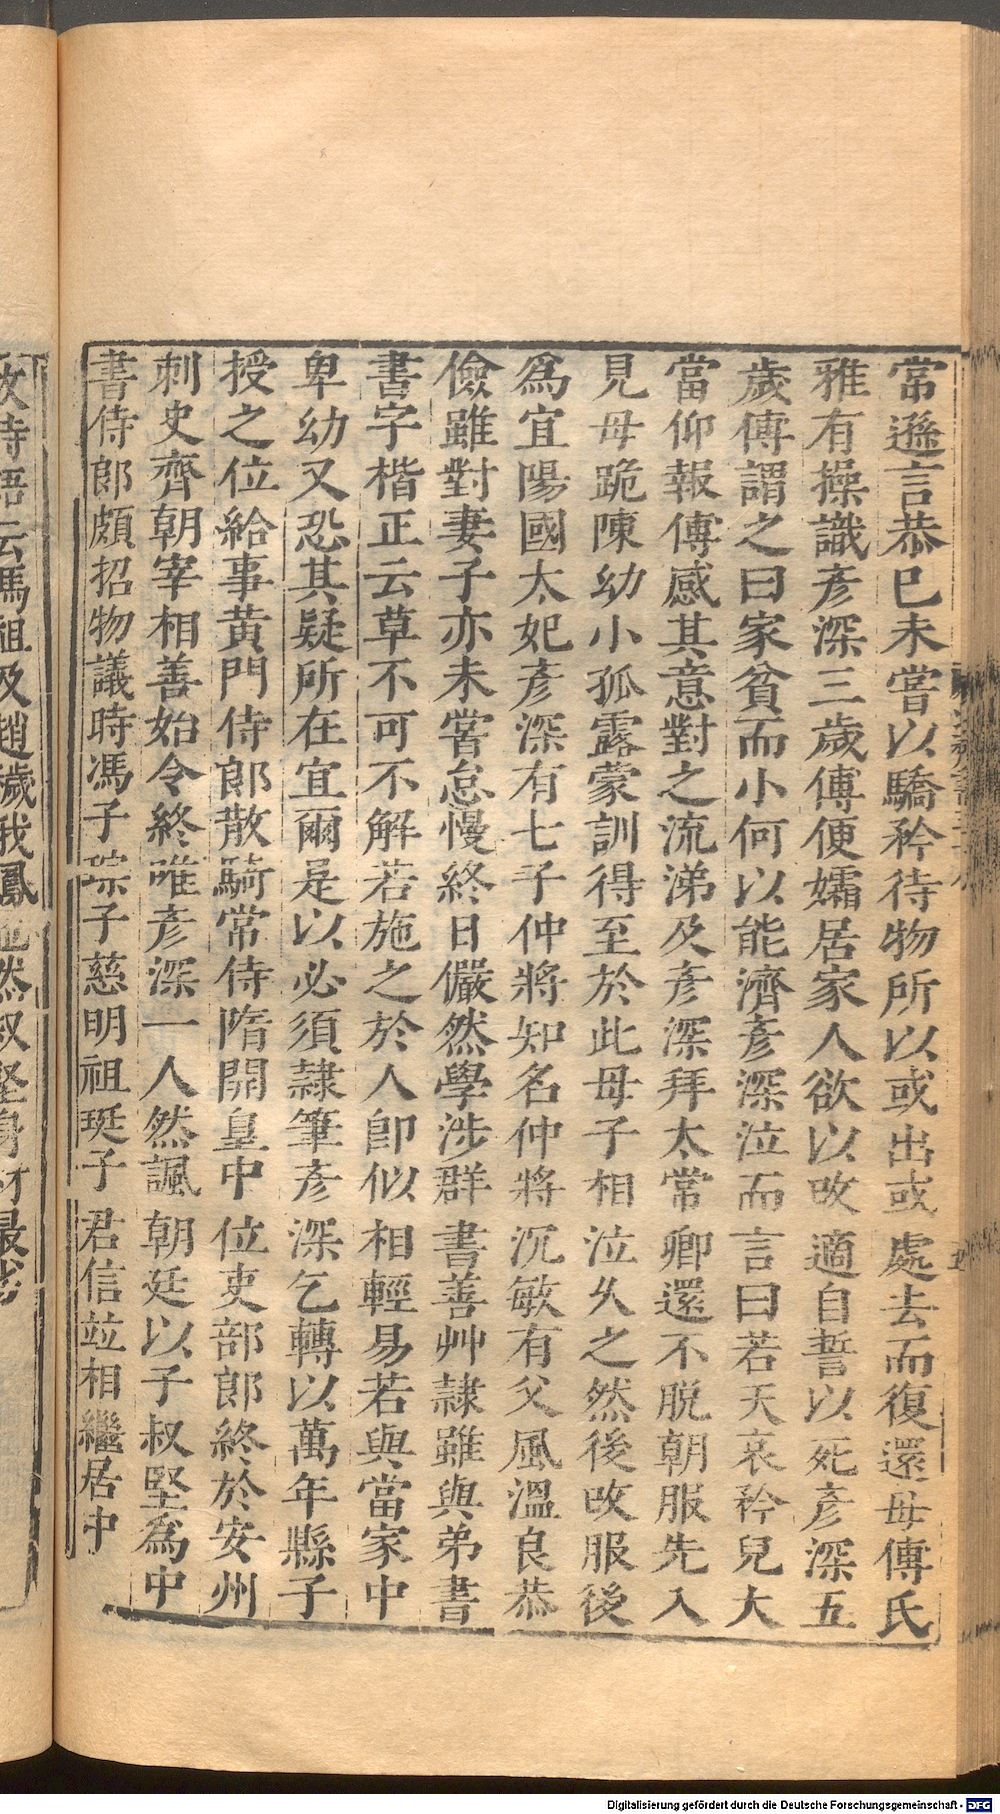 常遜言恭巳未嘗以驕矜待物所以或出或處去而復還母傅氏
雅有操識彥深三歲傅便孀居家人欲以改適自誓以死彥深五
歲傅謂之曰家貧而小何以能濟彥深泣而言曰若天哀矜兒大
當仰報傅感其意對之流涕及彥深拜太常卿還不脫朝服先入
見母跪陳幼小孤露蒙訓得至於此母子相泣乆之然後改服後
爲宜陽國太妃彥深有七子仲將知名仲將沉敏有父風溫良恭
儉雖對妻子亦未嘗怠慢終日儼然學涉群書善艸隷雖與弟書
書字楷正云草不可不解若施之於人卽似相輕易若與當家中
卑幼又恐其疑所在宜爾是以必須隷筆彥深乞轉以萬年縣子
授之位給事黃門侍郎散騎常侍隋開皇中位吏部郎終於安州
刺史齊朝宰相善始令終唯彥深一人然諷朝廷以子叔堅爲中
書侍郎頗招物議時馮子琮子慈明祖珽子君信竝相繼居中
故時語云馮祖及趙穢我鳳池然叔堅身材最劣
Digitalisierung gefördert durch die Deutsche Forschungsgemeinschaft - DFG